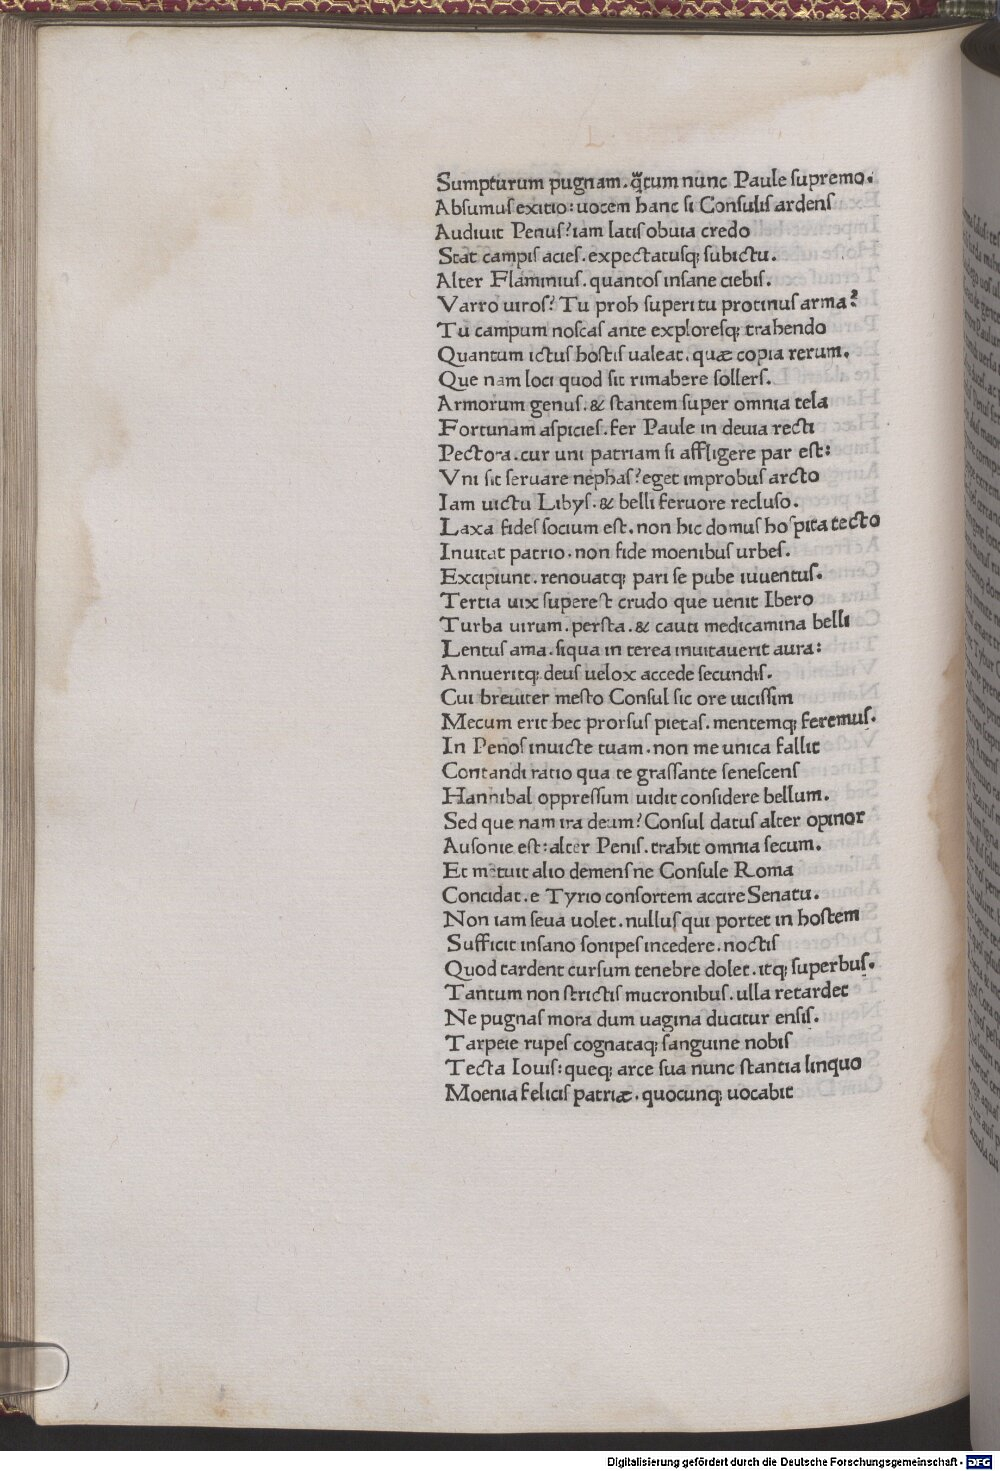 Sumpturum pugnam. q̃tum nunc Paule supremo.
Absumus exitio: uocem hanc si Consulis ardens
Audiuit Penus? iam latis obuia credo
Stat campis acies. expectatusq; subictu.
Alter Flaminius. quantos insane ciebis.
Varro uiros? Tu proh superi tu protinus arma?
Tu campum noscas ante exploresq; trahendo
Quantum ictus hostis ualeat. quæ copia rerum.
Que nam loci quod sit rimabere sollers.
Armorum genus. & stantem super omnia tela
Fortunam aspicies. fer Paule in deuia recti
Pectora. cur uni patriam si affligere par est:
Vni sit seruare nephas? eget improbus arcto
Iam uictu Libys. & belli feruore recluso.
Laxa fides socium est. non hic domus hospita tecto
Inuitat patrio. non fide moenibus urbes.
Excipiunt. renouatq; pari se pube iuuentus.
Tertia uix superest crudo que uenit Ibero
Turba uirum. persta. & cauti medicamina belli
Lentus ama. siqua in terea inuitauerit aura:
Annueritq; deus uelox accede secundis.
Cui breuiter mesto Consul sic ore uicissim
Mecum erit hec prorsus pietas. mentemq; feremus.
In Penos inuicte tuam. non me unica fallit
Contandi ratio qua te grassante senescens
Hannibal oppressum uidit considere bellum.
Sed que nam ira deum? Consul datus alter opinor
Ausonie est: alter Penis. trahit omnia secum.
Et metuit alio demens ne Consule Roma
Concidat. e Tyrio consortem accire Senatu.
Non iam seua uolet. nullus qui portet in hostem
Sufficit insano sonipes incedere. noctis
Quod tardent cursum tenebre dolet. itq; superbus.
Tantum non strictis mucronibus. ulla retardet
Ne pugnas mora dum uagina ducitur ensis.
Tarpeie rupes cognataq; sanguine nobis
Tecta Iouis: queq; arce sua nunc stantia linquo
Moenia felicis patriæ. quocunq; uocabit
Digitalisierung gefördert durch die Deutsche Forschungsgemeinschaft - DFG